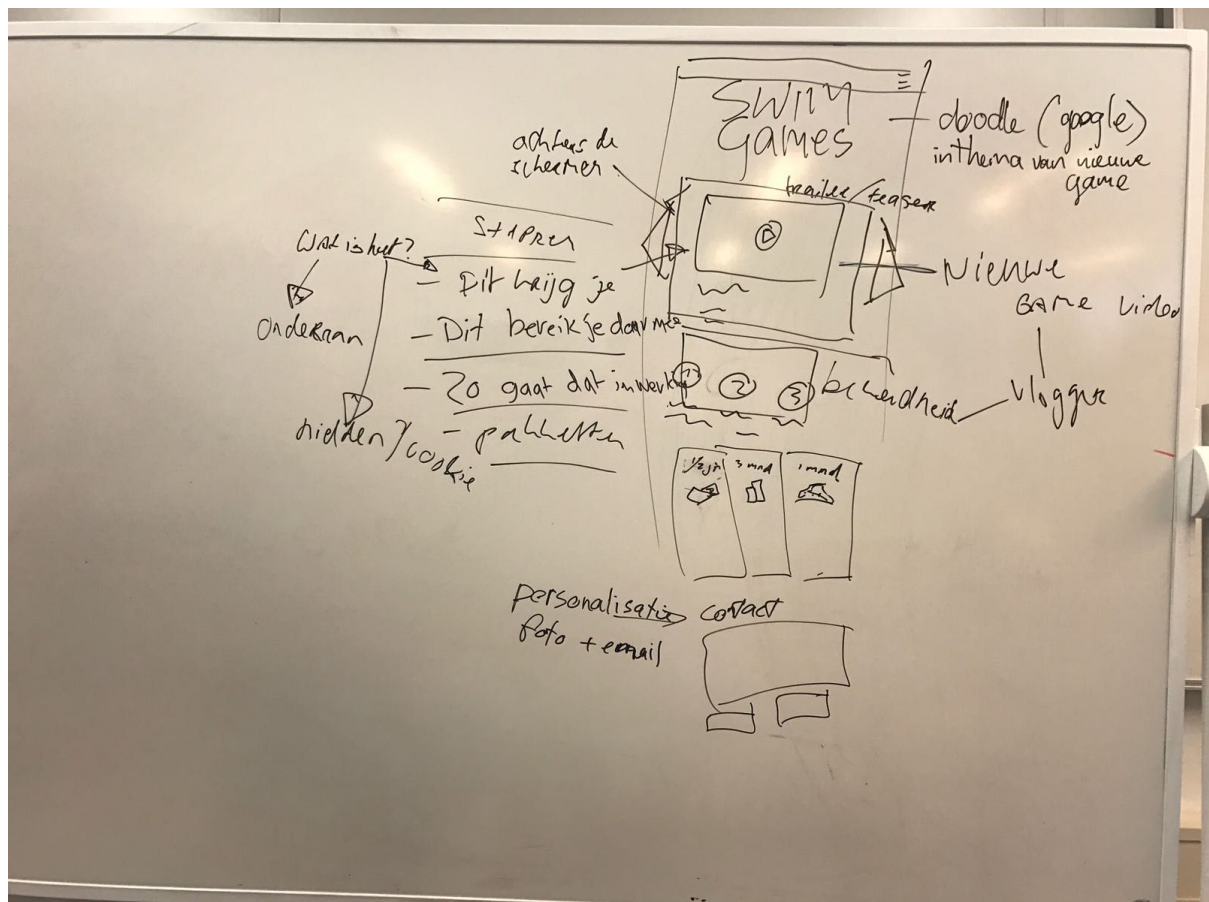 SWIM
GAMES
doodle (google)
in thema van nieuwe
game
achter de
schermen
trailer/teaser
Nieuwe
GAME video
vlogger
Stappen
Wat is het?
onderaan
hidden?/cookie
- Dit krijg je
- Dit bereik je daarmee
- Zo gaat dat in werking
- pakketten
1
2
3
bekendheid
1/2 jr
3 mnd
1 mnd
personalisatie
foto + email
contact